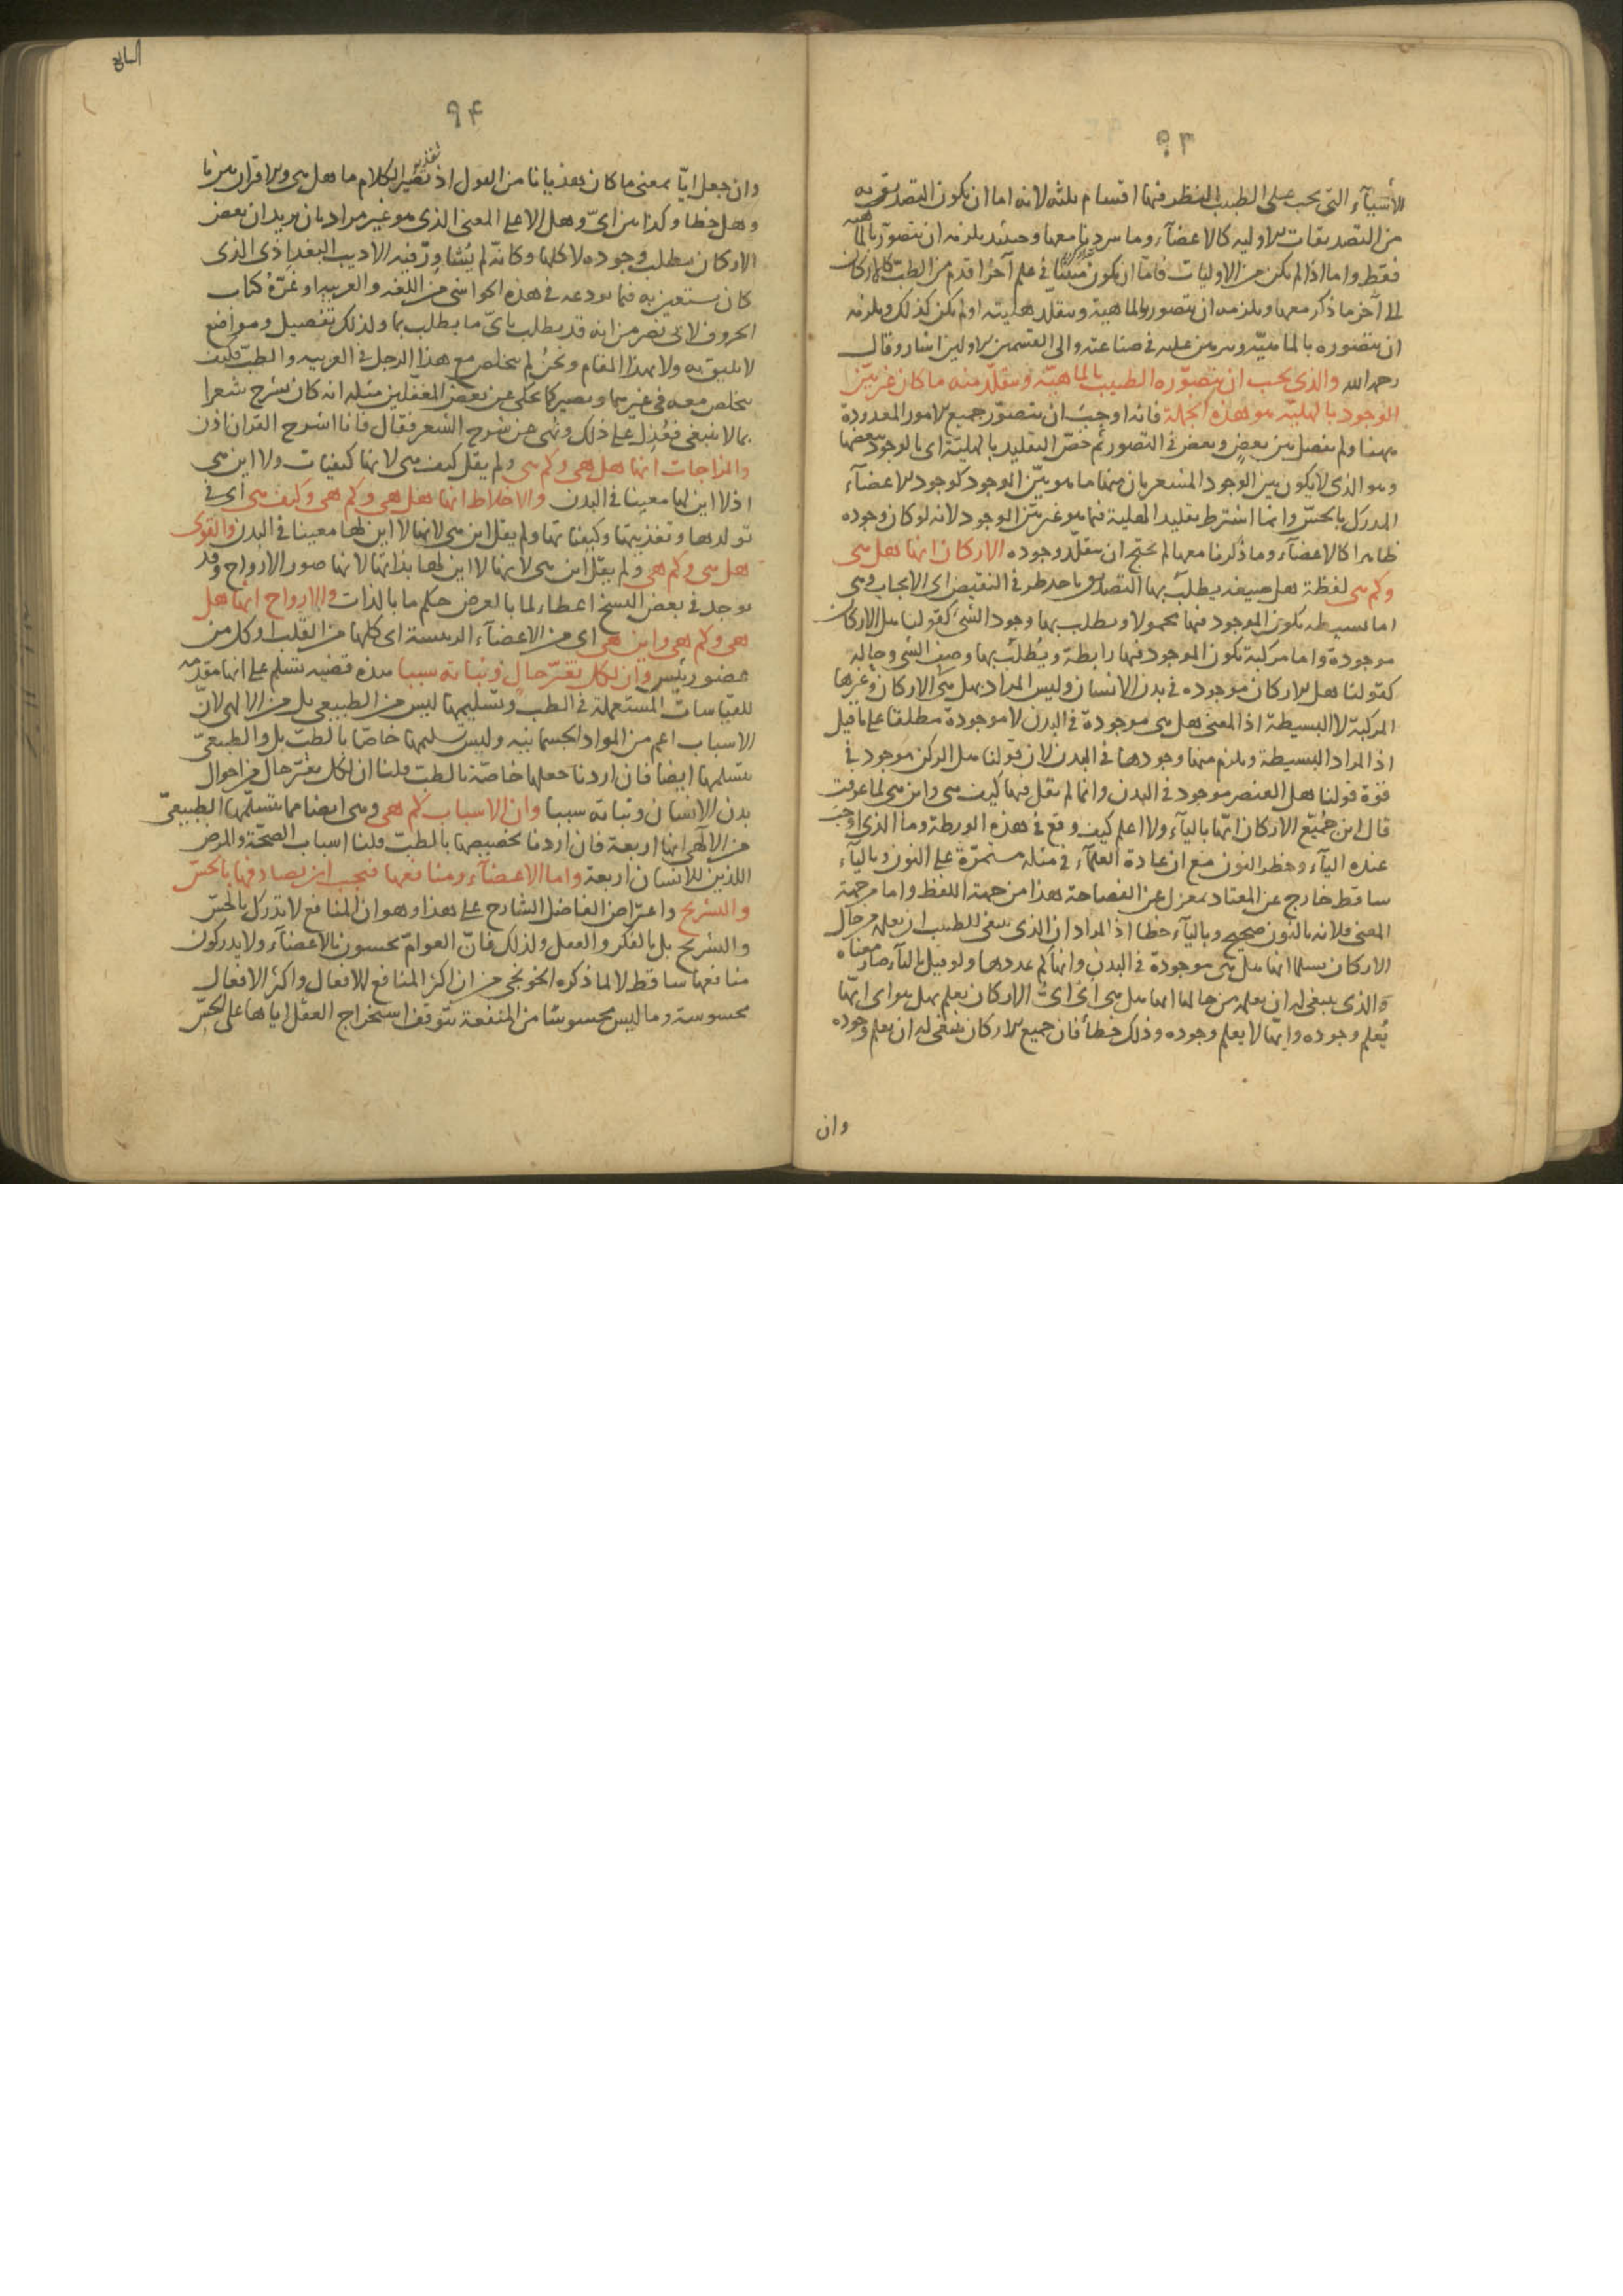 ٩٣
الأشيآء التى يجب على الطبيب النظر فيها اقسام ثلثة لانه اما ان يكون التصديق به
من التصديقات الاوليه كالاعضآء وما سردنا معها وحينئذ يلزمه ان يتصور بالماهية
فقط واما اذا لم يكن من الاوليات فاما ان يكون مبينا فى علم آخر اقدم من الطب كالاركان
الى آخر ما ذكر معها ويلزمه ان يتصوره بالماهية ويتقلد هليته او لم يكن كذلك ويلزمه
ان يتصوره بالماهيّة ويبرهن عليه فى صناعته والى القسمين الاولين اشار وقال
رحمه الله والذى يجب ان يتصوره الطبيب بالماهيّة ويتقلد منه ما كان غير بيّن
الوجود بالهليّة هو هذه الجملة فانه اوجب ان يتصور جميع الامور المعدودة
ههنا ولم يفصل بين بعض وبعض فى التصور ثم خصّ التقليد بالهليّة اى بالوجود ببعضها
وهو الذى لا يكون بين الوجود المشعر بان منها ما هو بيّن الوجود كوجود الاعضآء
المدرك بالحسّ وانما اشترط تقليد الهلية فيما هو غير بيّن الوجود لانه لو كان وجوده
ظاهرا كالاعضآء وما ذكرنا معها لم يحتج ان يتقلد وجوده الاركان انها هل هى
وكم هى لفظة هل صيغة يطلب بها التصديق باحد طرفى النقيض اى الايجاب وهى
اما بسيطه يكون الموجود فيها محمولا ويطلب بها وجود الشئ كقولنا هل الاركان
موجودة واما مركبة يكون الموجود فيها رابطة ويُطلب بها وصف الشئ وحاله
كقولنا هل الاركان موجوده فى بدن الانسان وليس المراد بهل هى الاركان وغيرها
المركبة لا البسيطة اذ المعنى هل هى موجودة فى البدن لا موجودة مطلقا على ما قيل
اذ المراد البسيطة ويلزم منها وجودها فى البدن لان قولنا هل الركن موجود فى
قوة قولنا هل العنصر موجود فى البدن وانما لم يقل فيها كيف هى واين هى لما عرفت
قال ابن جُميع الاركان ايّها باليآء ولا اعلم كيف وقع فى هذه الورطة وما الذى اوجب
عنده اليآء وحظر النون مع ان عادة العلمآء فى مثله مستمرّة على النون وباليآء
ساقط خارج عن المعتاد بمعزل عن الفصاحة هذا من جهة اللفظ واما من جهة
المعنى فلانه بالنون صحيح وباليآء خطا اذ المراد ان الذى ينبغى للطبيب ان يعلم من حال
الاركان انها هل هى موجودة فى البدن وانها كم عددها ولو قيل باليآء صار معناه
والذى ينبغى له ان يعلمه من حالها ايها هل هى اى اىّ الاركان يعلم بهل هو اى ايّها
يُعلم وجوده وايّها لا يعلم وجوده وذلك خطأ فان جميع الاركان ينبغى له ان يعلم وجوده
وان
٩٤
وان جعل ايّا بمعنى ما كان هذيانا من القول اذ يصير الكلام ما هل هى
تقدير
وهل خطا وكذا بين اىّ وهل الا على المعنى الذى هو غير مراد بان يريد ان بعض
الاركان يطلب وجوده لا كلها وكانّه لم يُشاور فيه الاديب البغداذى الذى
كان يستعين به فيما يودعه فى هذه الحواشى من اللغه والعربيه او غرّه كتاب
الحروف لابى نصر من انه قد يطلب باىّ ما يطلب بما ولذلك تفصيل ومواضع
لا يليق به ولا بهذا المقام ونحن لم نتخلص مع هذا الرجل فى العربيه والطب فكيف
نتخلص معه فى غيرهما ويصير كما حكى عن بعض المغفّلين مثله انه كان يشرح شعرا
بما لا ينبغى فعُذِل على ذلك ونهى عن شرح الشعر فقال فانا اشرح القران اذن
والمزاجات انها هل هى وكم هى ولم يقل كيف هى لانها كيفيات ولا اين هى
اذ لا اين لها معينا فى البدن والاخلاط انها هل هى وكم هى وكيف هى اى فى
تولدها وتغذيتها وكيفياتها ولم يقل اين هى لانها لا اين لها معينا فى البدن والقوى
هل هى وكم هى ولم يقل اين هى لانها لا اين لها بذاتها لانها صور الارواح وقد
يوجد فى بعض النسخ اعطاء لما بالعرض حكم ما بالذات والارواح انها هل
هى وكم هى واين هى اى من الاعضآء الرئيسة اى كلها من القلب او كل من
عضو رئيس وان لكل تغيّر حال وثباته سببا هذه قضيه تتسلم على انها مقدمة
للقياسات المستعملة فى الطب وتسليمها ليس من الطبيعى بل من الالهى لانّ
الاسباب اعم من المواد الجسمانيه وليس تسليمها خاصّا بالطبّ بل والطبيعىّ
يتسلمها ايضا فان اردنا جعلها خاصّة بالطب قلنا ان لكل تغيّر حال من احوال
بدن الانسان وثباته سببا وان الاسباب كم هى وهى ايضا مما يتسلّمها الطبيعىّ
من الآلهى انها اربعة فان اردنا تخصيصها بالطب قلنا اسباب الصحّة والمرض
اللذين للانسان اربعة واما الاعضآء ومنافعها فيجب ان يصادفها بالحسّ
والتشريح واعترض الفاضل الشارح على هذا وهو ان المنافع لا تدرك بالحسّ
والتشريح بل بالفكر والعقل ولذلك فانّ العوامّ يحسون بالاعضآء ولا يدركون
منافعها ساقط لا لما ذكره الخونجى من ان اكثر المنافع للافعال واكثر الافعال
محسوسة وما ليس محسوسًا من المنفعة يتوقف استخراج العقل اياها على الحسّ